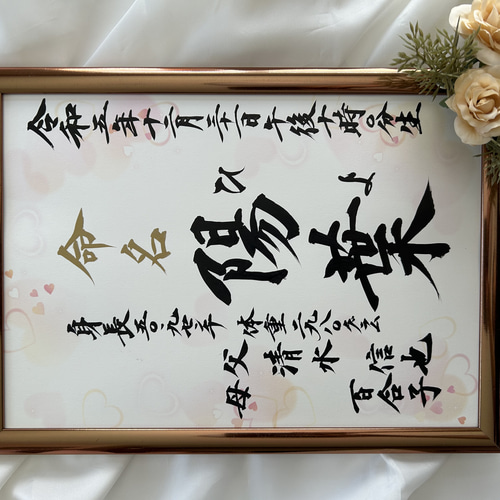 令和五年十二月三十一日午後十時〇分生
ひよ
命名 陽葉
身長五〇.九センチ 体重二九八〇グラム
父 清水 信也
母 百合子